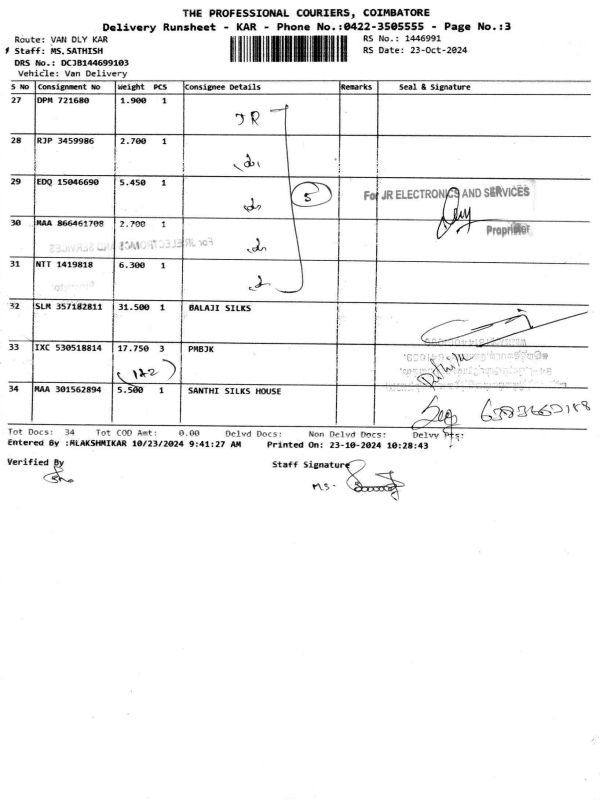 THE PROFESSIONAL COURIERS, COIMBATORE
Delivery Runsheet - KAR - Phone No.:0422-3505555 - Page No.:3
Route: VAN DLY KAR
RS No.: 1446991
Staff: MS.SATHISH
RS Date: 23-Oct-2024
DRS No.: DCJB144699103
Vehicle: Van Delivery
S No Consignment No Weight PCS Consignee Details Remarks Seal & Signature
27 DPM 721680 1.900 1 JR
28 RJP 3459986 2.700 1
29 EDQ 15046690 5.450 1 5 For JR ELECTRONICS AND SERVICES
30 MAA 866461708 2.700 1 Proprietor
31 NTT 1419818 6.300 1
32 SLM 357182811 31.500 1 BALAJI SILKS
33 IXC 530518814 17.750 3 PMBJK
(1A2)
34 MAA 301562894 5.500 1 SANTHI SILKS HOUSE
Tot Docs: 34 Tot COD Amt: 0.00 Delvd Docs: Non Delvd Docs: Delvy
Entered By :MLAKSHMIKAR 10/23/2024 9:41:27 AM Printed On: 23-10-2024 10:28:43
Verified By
Staff Signature
MS.